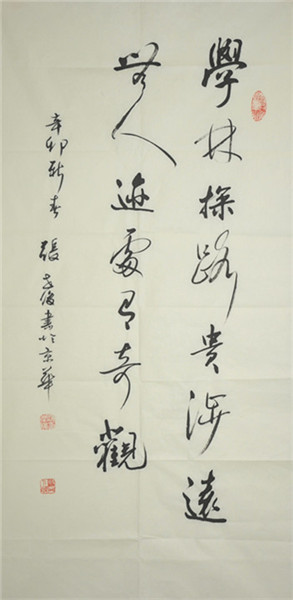 學林探路貴涉遠
無人迹處有奇觀
辛卯新春 張 俊書於京華